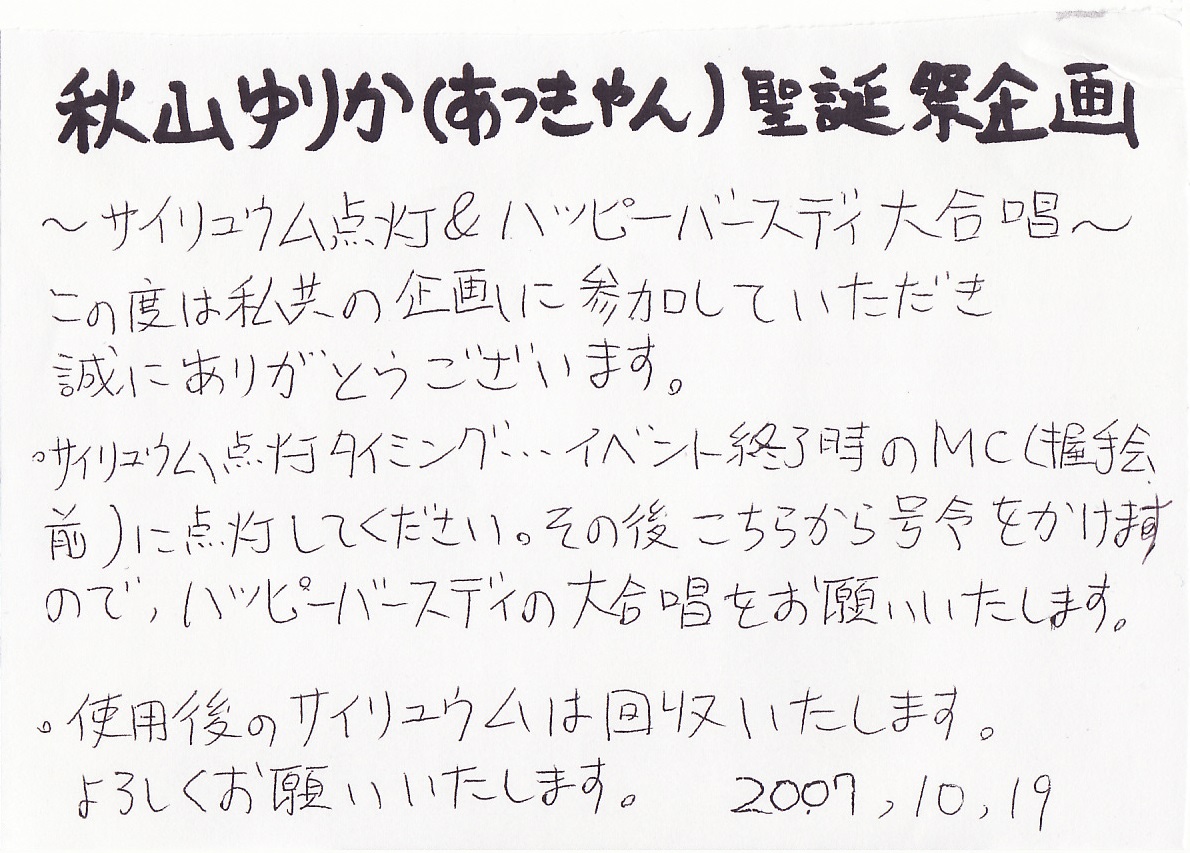 秋山ゆりか(あっきゃん)聖誕祭企画
～サイリュウム点灯&ハッピーバースディ大合唱～
この度は私共の企画に参加していただき
誠にありがとうございます。
。サイリュウム点灯タイミング…イベント終了時のMC(握手会
前)に点灯してください。その後こちらから号令をかけます
ので, ハッピーバースディの大合唱をお願いいたします。
。使用後のサイリュウムは回収いたします。
よろしくお願いいたします。 2007,10,19